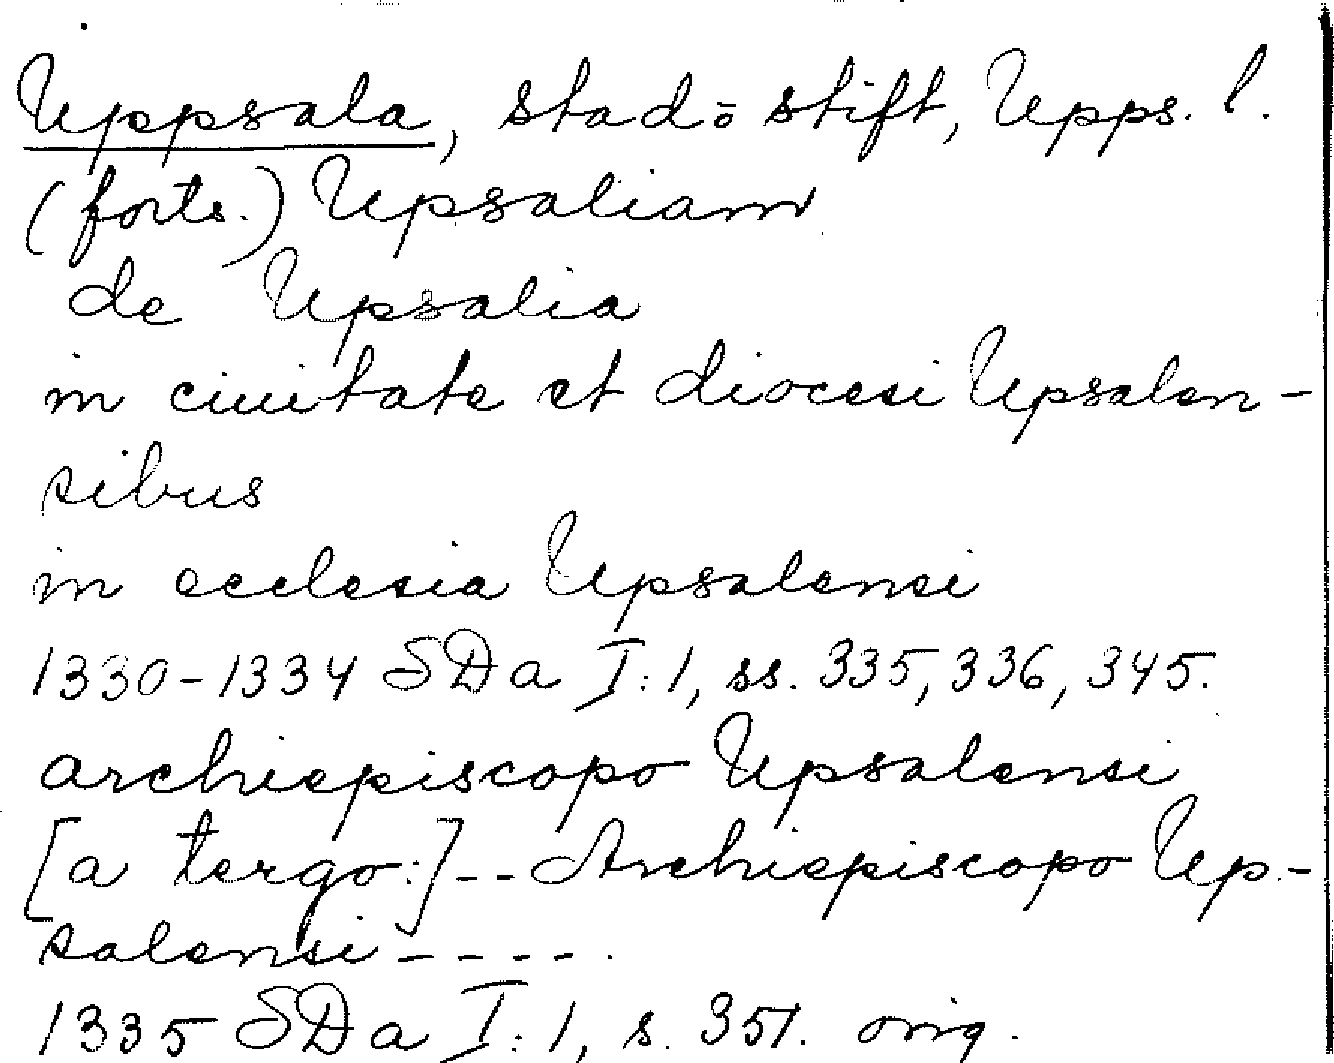 Uppsala, stad o stift, Upps. l.
(forts.) Upsaliam
de Upsalia
in ciuitate et diocesi Upsalen-
sibus
in ecclesia Upsalensi
1330-1334 SDa I:1, ss. 335, 336, 345.
archiepiscopo Upsalensi
[a tergo:] -- Archiepiscopo Up-
salensi ----.
1335 SDa I:1, s. 351. orig.